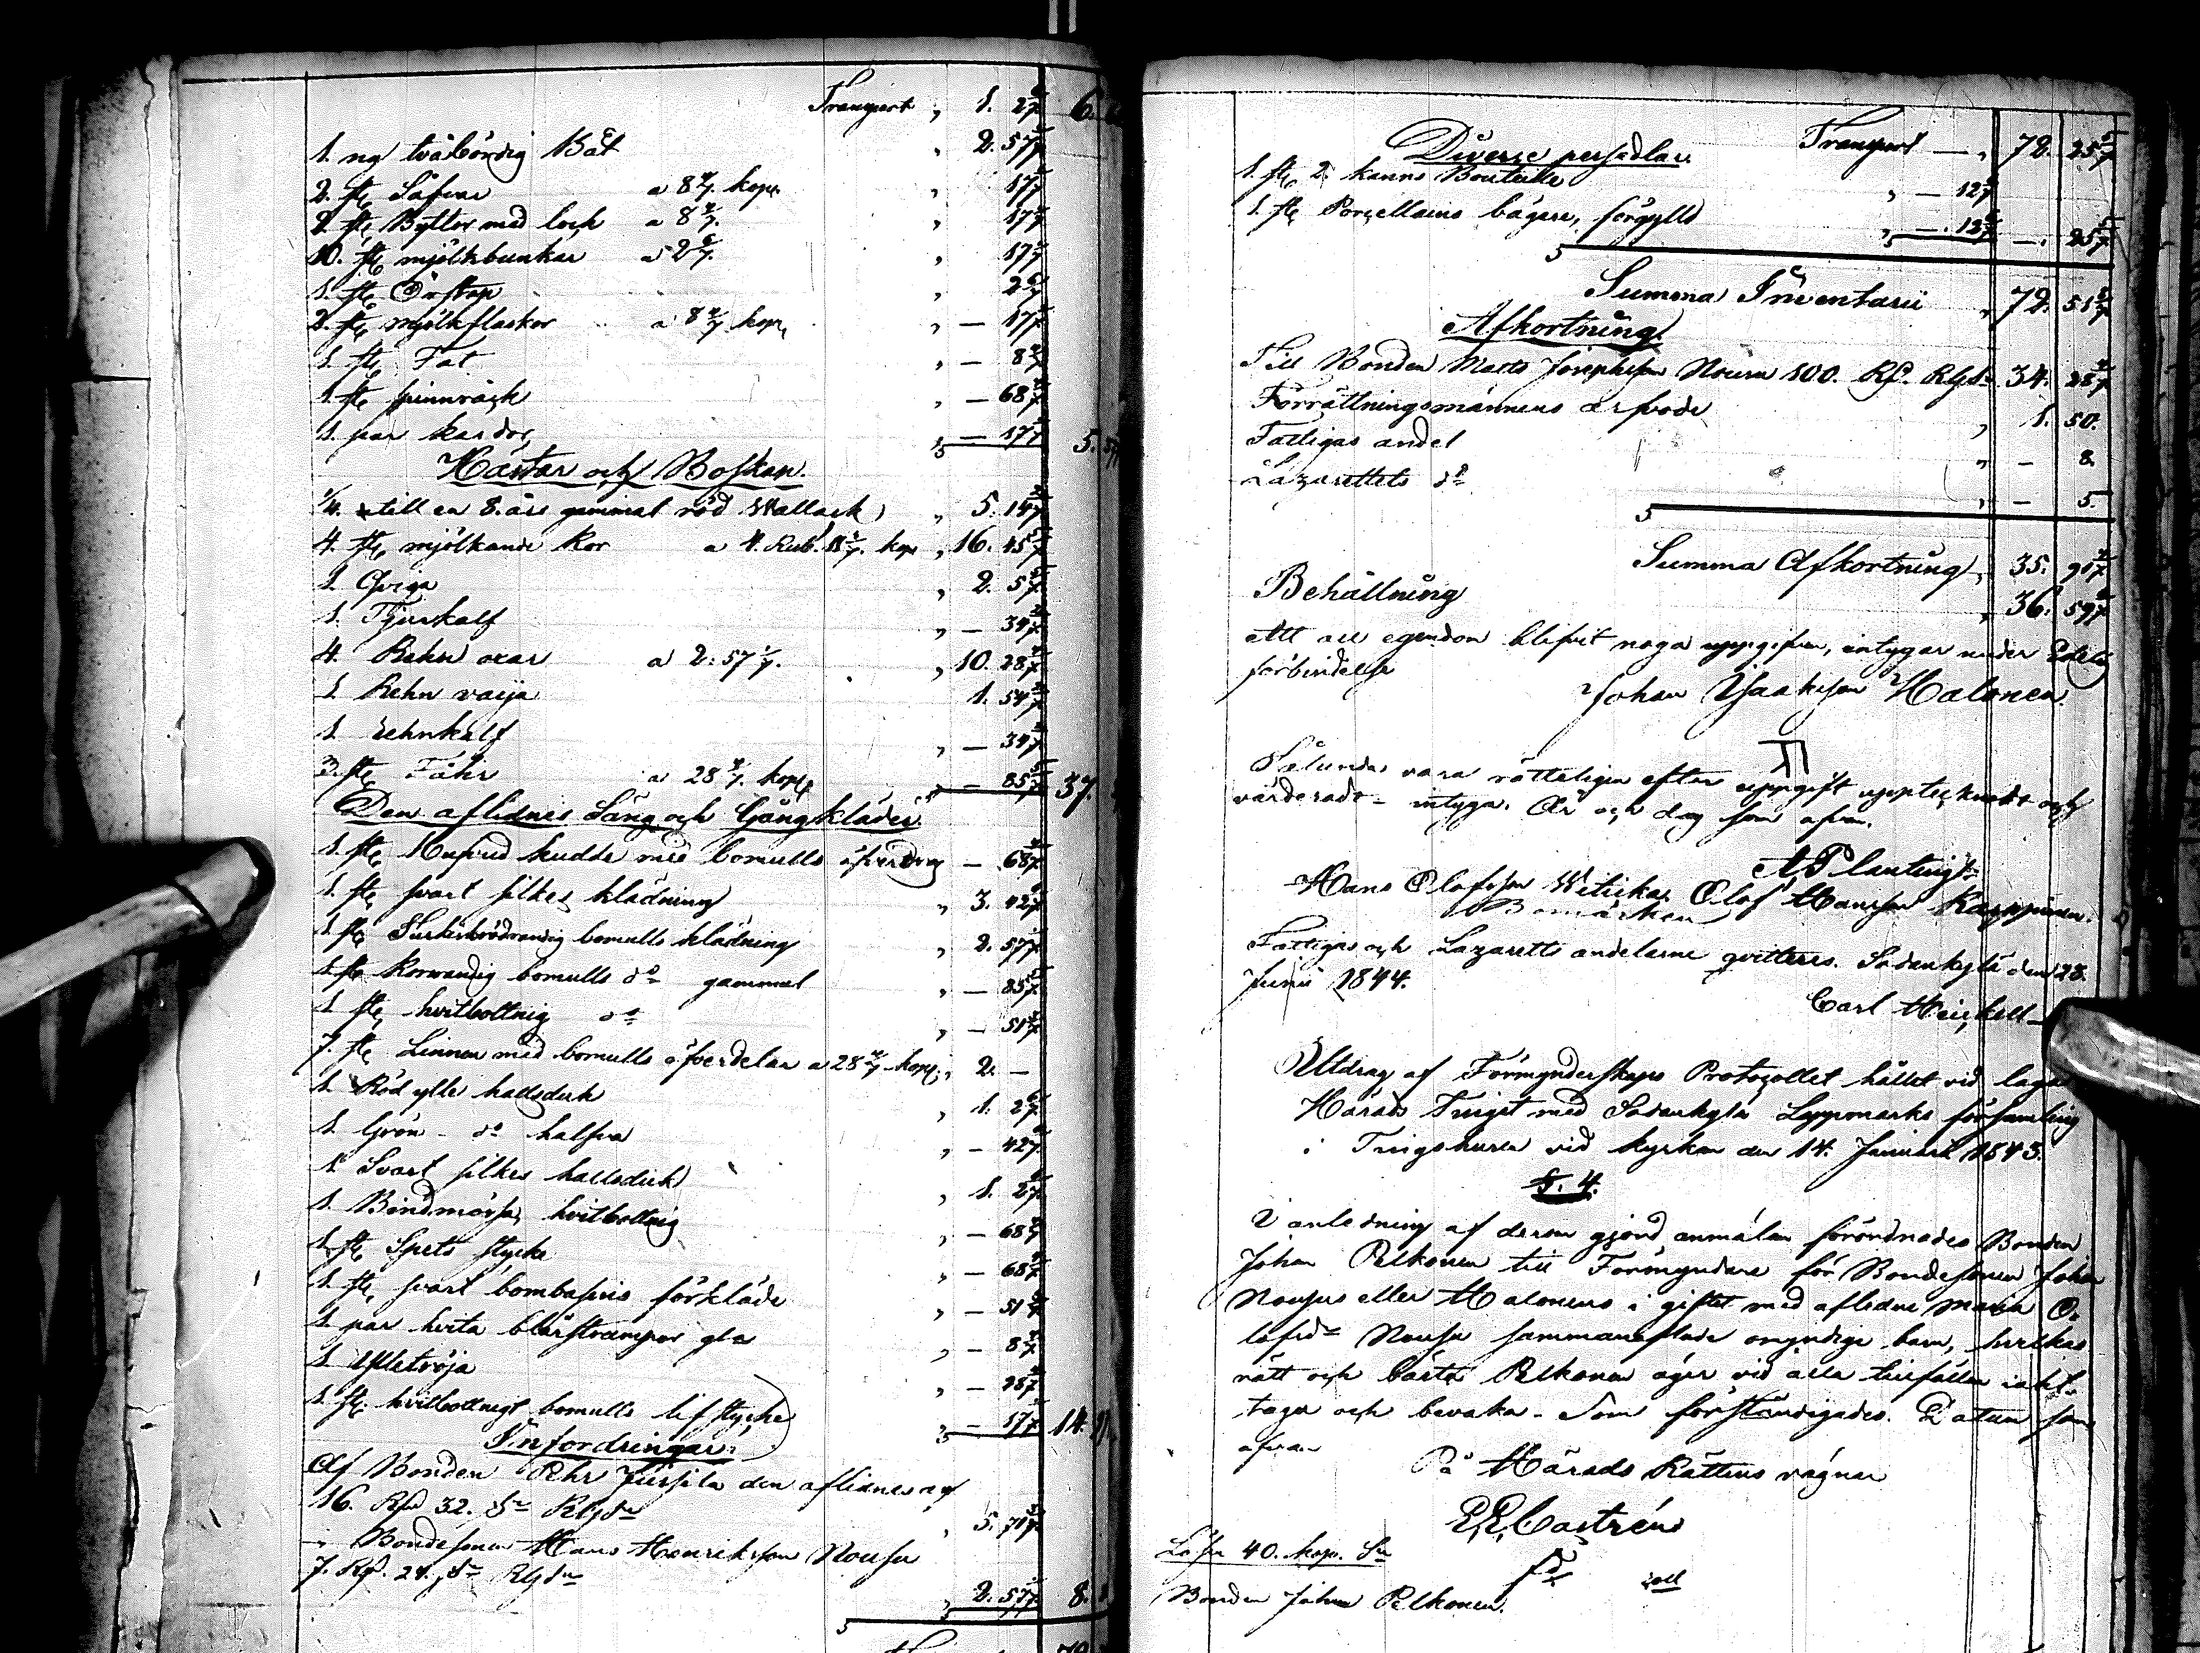 Transport „ 1. 27 6/7 6.
1. ny tvåbördig Båt „ 2. 57 1/7
2. st. Såfvar a 8 4/7 kop. „ 17 1/7
2. st. Byttor med lock a 8 4/7. „ 17 1/7
10. st. mjölkbunkar a 2 6/7. „ 17 1/7
1. st. Örstop „ 2 6/7
2. st. mjölkflaskor a 8 4/7 kop. „ — 17 1/7
1. st. Fat „ — 8 4/7
1. st. spinnråck „ — 68 4/7
1. par kardor „ — 17 1/7 5.
Hästar och Boskap.
1/4. till en 8. års gammal röd Wallack „ 5. 14 2/7
4. st. mjölkande Kor a 4. Rub. 11 3/7. kop „ 16. 45 5/7
1. Qviga „ 2. 5 5/7
1. Tjurkalf „ — 34 2/7
4. Rehn oxar a 2: 57 1/7. „ 10. 28 4/7
1. Rehn vaija 1. 54 2/7
1. rehnkalf „ — 34 2/7
3. st. Fåhr a 28 4/7. kop. „ — 85 5/7 37.
Den aflidnes Säng och Gångkläder
1. st. Hufvud kudde med bomulls öfverdrag — 68 4/7
1. st. svart silkes klädning „ 3. 42 6/7
1. st. rödrandig bomulls klädning „ 2. 57 1/7
1. st. Korsrandig bomulls do gammal „ — 85 5/7
1. st. hvitbottnig do „ — 51 3/7
7. st. Linnen med bomulls öfverdelar a 28 4/7 kop. „ 2. —
1. Röd ylle halsduk „ 1. 2 6/7
1. Grön do halfva „ — 42 6/7
1. Svart silkes halsduk „ 1. 2 6/7
1. Bindmössa, hvitbottnig „ — 68 4/7
1. st. Spets stycke „ — 68 4/7
1. st. svart bombasins förkläde „ — 51 3/7
1. par hvita blårstrumpor gla „ — 8 4/7
1. Ylletröja „ — 28 4/7
1. st. hvitbottnigt bomulls lifstycke „ — 17 1/7 14.
Infordringar.
Af Bonden Pehr den aflidnes arf
16. Rp 32. s. Rgds „ 5. 71 3/7
„ Bondesonen Hans Henriksson Nousu
7. Rp. 24. s. Rgds „ 2. 57 1/7 8.
Diverse persedlar. Transport — „ 72. 25 5/7
1. st. 2. kanns Bouteille „ — 12 6/7
1. st. Porcellains bägare, förgylld „ — 12 6/7 —. 25 5/7
Summa Inventarii „ 72. 51 3/7
Afkortning.
Till Bonden Matts Josephsson Nousu 100. Rp. Rgds 34. 28 4/7
Förrättningsmännens arfvode „ 1. 50.
Fattigas andel „ — 8.
Lazarettets do „ — 5.
Summa Afkortning „ 35. 91 4/7
Behållning „ 36. 59 6/7
Att all egendom blifvit noga uppgifven, intygar under Edelig
förbindelse
Johan Isaaksson Halonen
Sålunda vara rätteligen efter uppgift uppteknadt och
värderadt - intyga. År och dag som ofvan.
A Plantingh
Hans Olofsson Olof Hansson Karppinen.
Bomärken
Fattigas och Lazaretts andelarne qvitteres. Sodankylä den 28.
Junii 1844.
Carl Heickell
Utdrag af Förmynderskaps Protocollet hållet vid laga
Härads Tinget med Sodankylä Lappmarks församling
i Tingshuset vid kyrkan den 14. Januarii 1843.
§. 4.
I anledning af derom gjord anmälan förordnades Bonden
Johan Pelkonen till Förmyndare för Bondesonen Johan
Nousus eller Halonens i giftet med aflidne Maria O-
lofsdr Nousu sammanaflade omyndige barn, hvilkas
rätt och bästa Pelkonen äger vid alla tillfällen iakt-
taga och bevaka. Som förständigades. Datum som
ofvan
På Härads Rättens vägnar
E. E. Castrén
Lösen 40. kop. Sr
Bonden Johan Pelkonen.